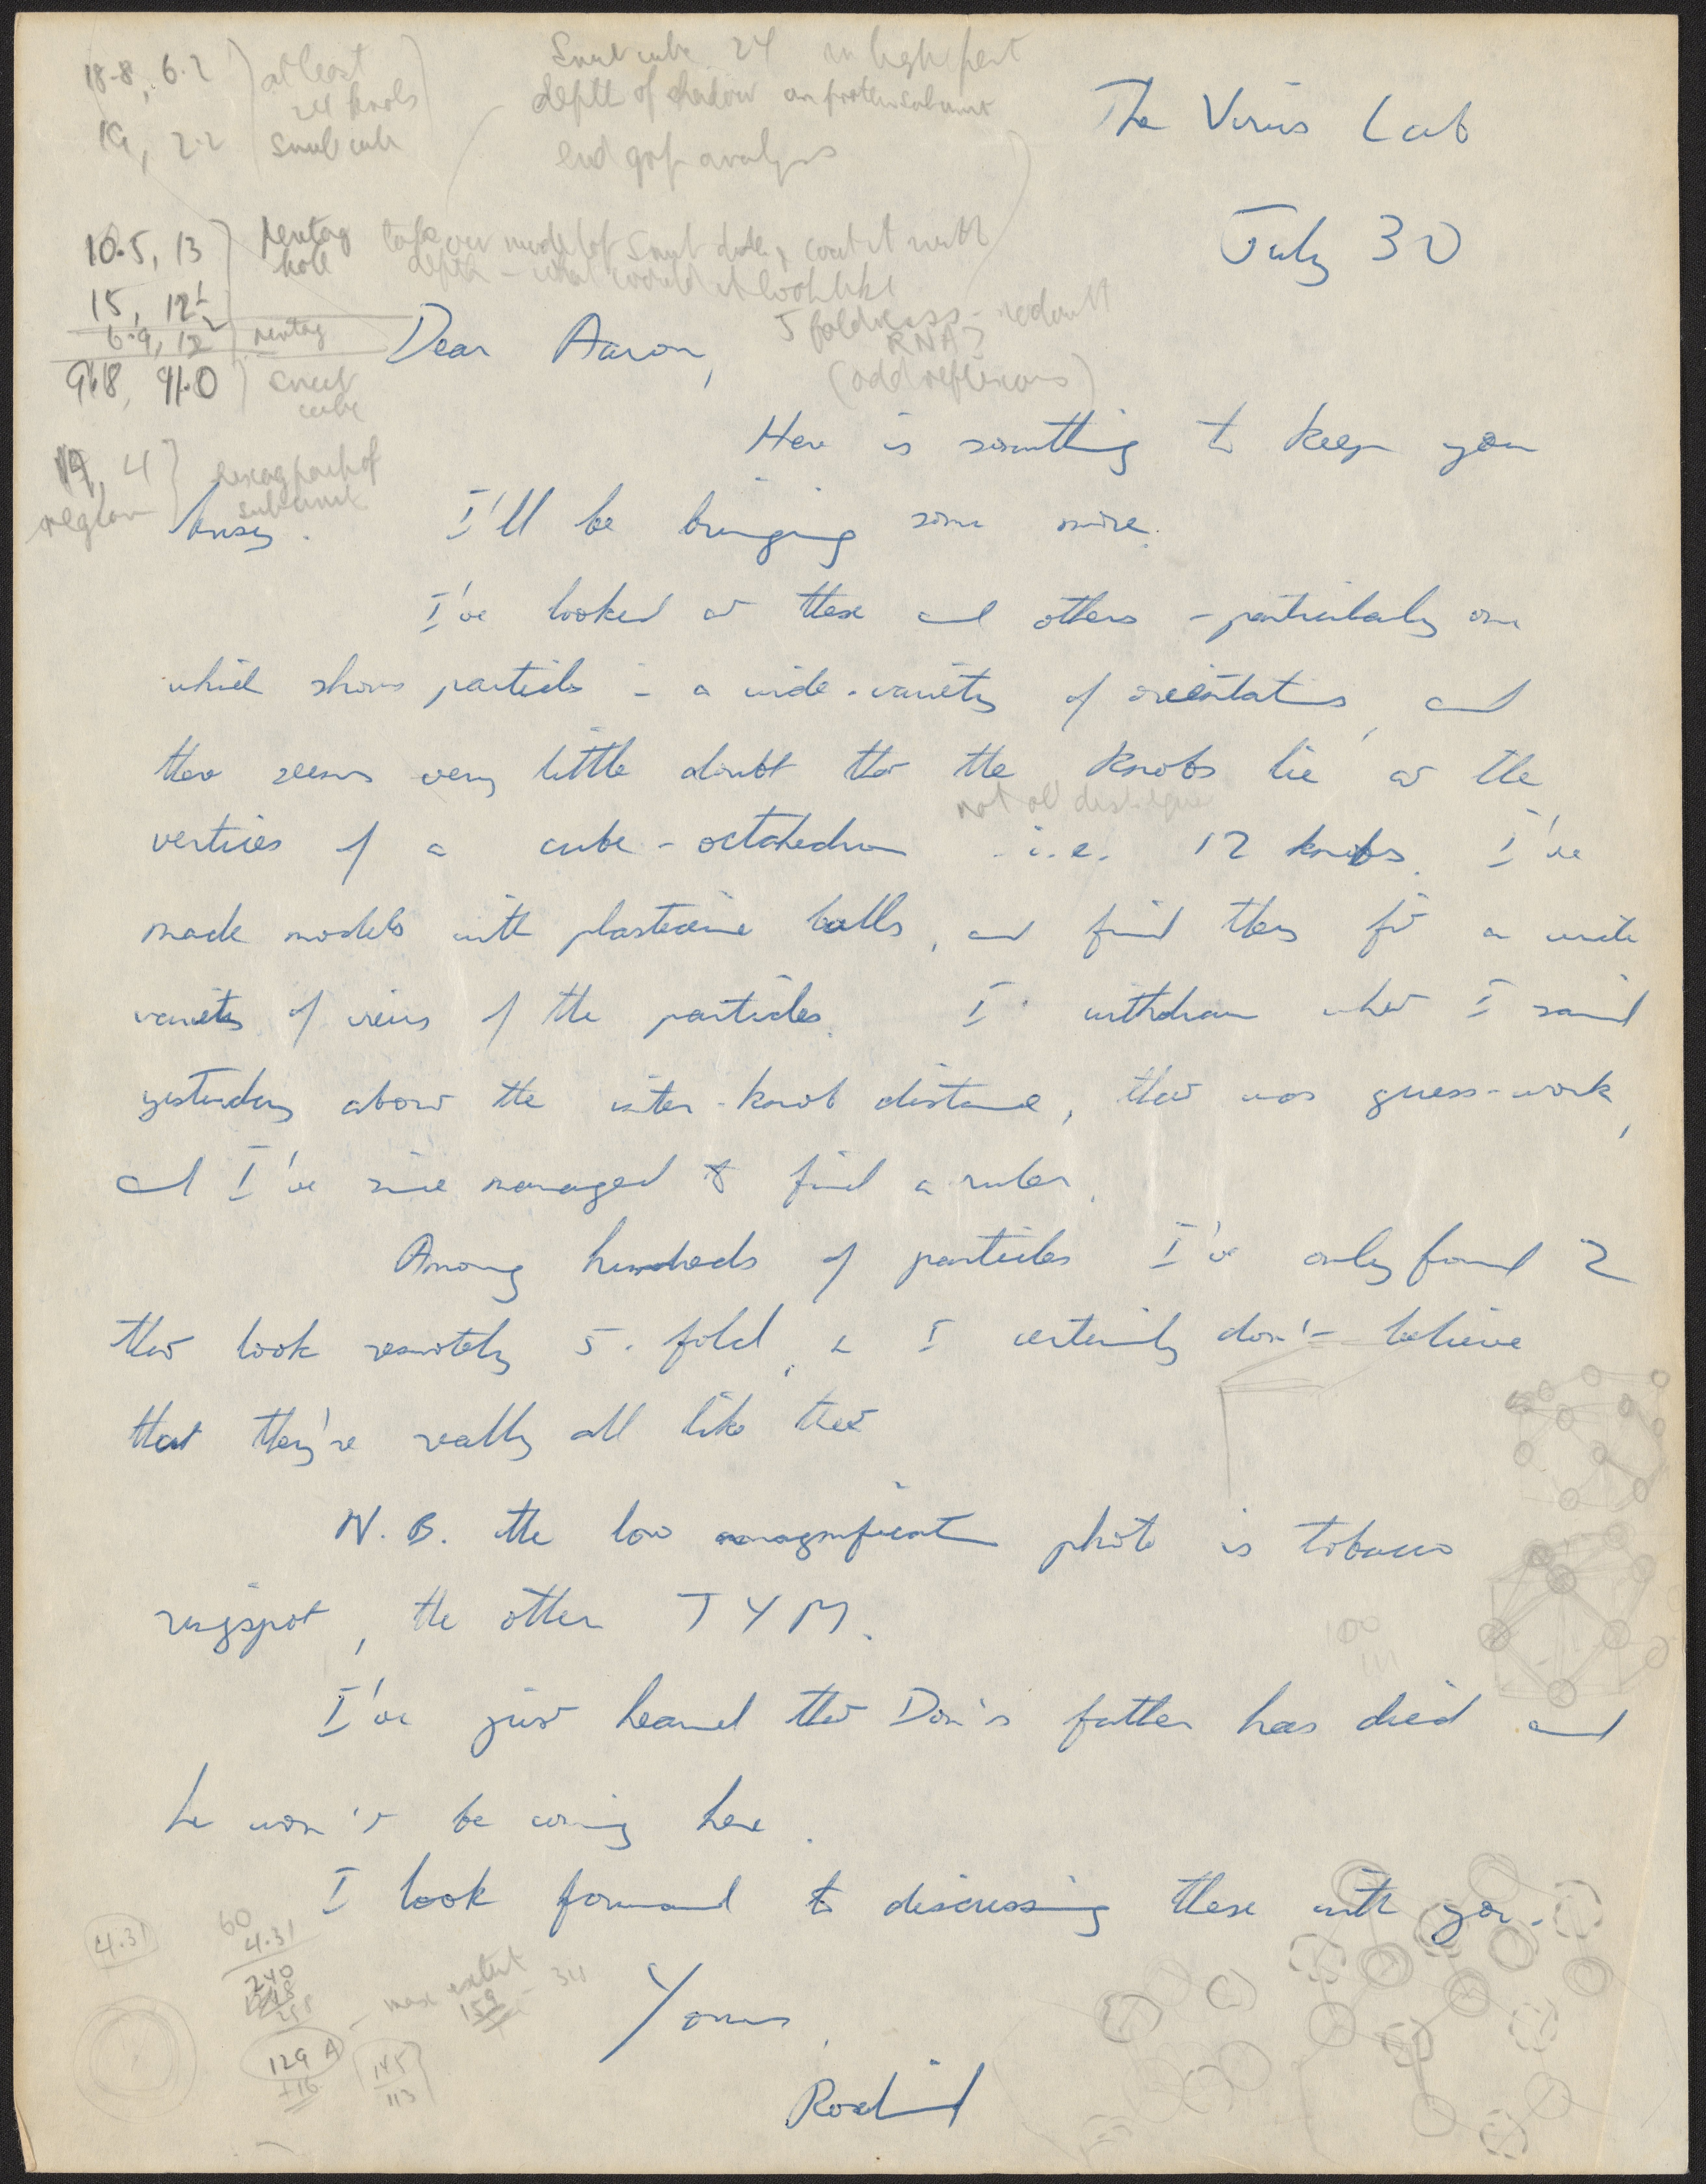 18.8, 6.2
at least
24 knobs
19, 2.2
snub cube
Snub cube 24
depth of shadow on protein subunit
end group analysis
10.5, 13
pentag
hole
15, 12
6.9, 12
pentag
9.8, 9.0
snub
cube
19, 4
region
hexag part of
subunit
5 foldness
RNA?
(odd reflexions)
The Virus Lab
July 30
Dear Aaron,
Here is something to keep you
busy. I'll be bringing some more.
I've looked at these and others - particularly one
which shows particles in a wide-variety of orientations, and
there seems very little doubt that the knobs lie at the
not all
vertices of a cube-octahedron i.e. 12 knobs. I've
made models with plasticine balls, and find they fit a wide
variety of views of the particles. I withdraw what I said
yesterday about the inter-knob distance, that was guess-work,
and I've since managed to find a ruler.
Among hundreds of particles I've only found 2
that look remotely 5-fold, & I certainly don't believe
that they're really all like that
N.B. the low magnification photo is tobacco
ringspot, the other TYM.
I've just heard that Don's father has died and
he won't be coming here.
I look forward to discussing these with you.
Yours,
Rosalind
4.31
60
4.31
240
129 A
+16
max extent
159
145
113